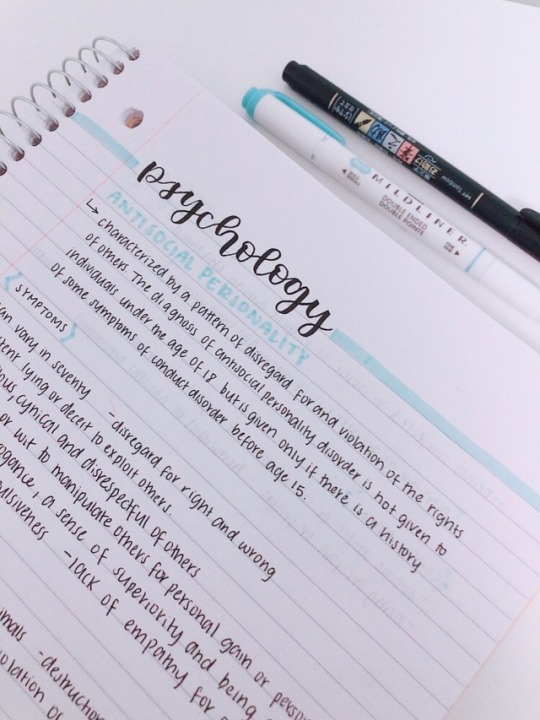 psychology
ANTISOCIAL PERSONALITY
↳ characterized by a pattern of disregard for and violation of the rights
of others. The diagnosis of antisocial personality disorder is not given to
individuals under the age of 18 but is given only if there is a history
of some symptoms of conduct disorder before age 15.
SYMPTOMS
can vary in severity - disregard for right and wrong
lying or deceit to exploit others.
cynical and disrespectful of others
or wit to manipulate others for personal gain or
a sense of superiority and being
- lack of empathy for
- destruction
MILDLINER
DOUBLE ENDED
DOUBLE POINTE